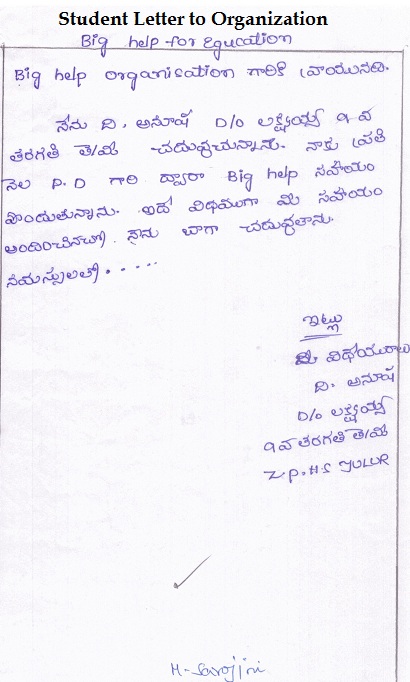 Student Letter to Organization
Big help for Education
Big help organisation గారికి వ్రాయునది.
నేను ది. అనూష D/o లక్ష్మయ్య 9 వ
తరగతి తె/మీ చదువుచున్నాను. నాకు ప్రతి
నెల P.D గారి ద్వారా Big help సహాయం
పొందుతున్నాను. ఇదే విధముగా మీ సహాయం
అందించినచో నేను బాగా చదువుతాను.
నమస్సులతో.....
ఇట్లు
మీ విధేయురాలు
ది. అనూష
D/o లక్ష్మయ్య
9 వ తరగతి తె/మీ
Z.P.H.S JULUR
M-Sarojini